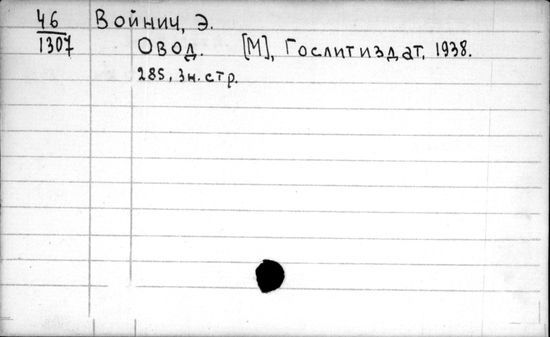 46 Войнич, Э.
1307 Овод. [М], Гослитиздат, 1938.
285, 3н. стр.